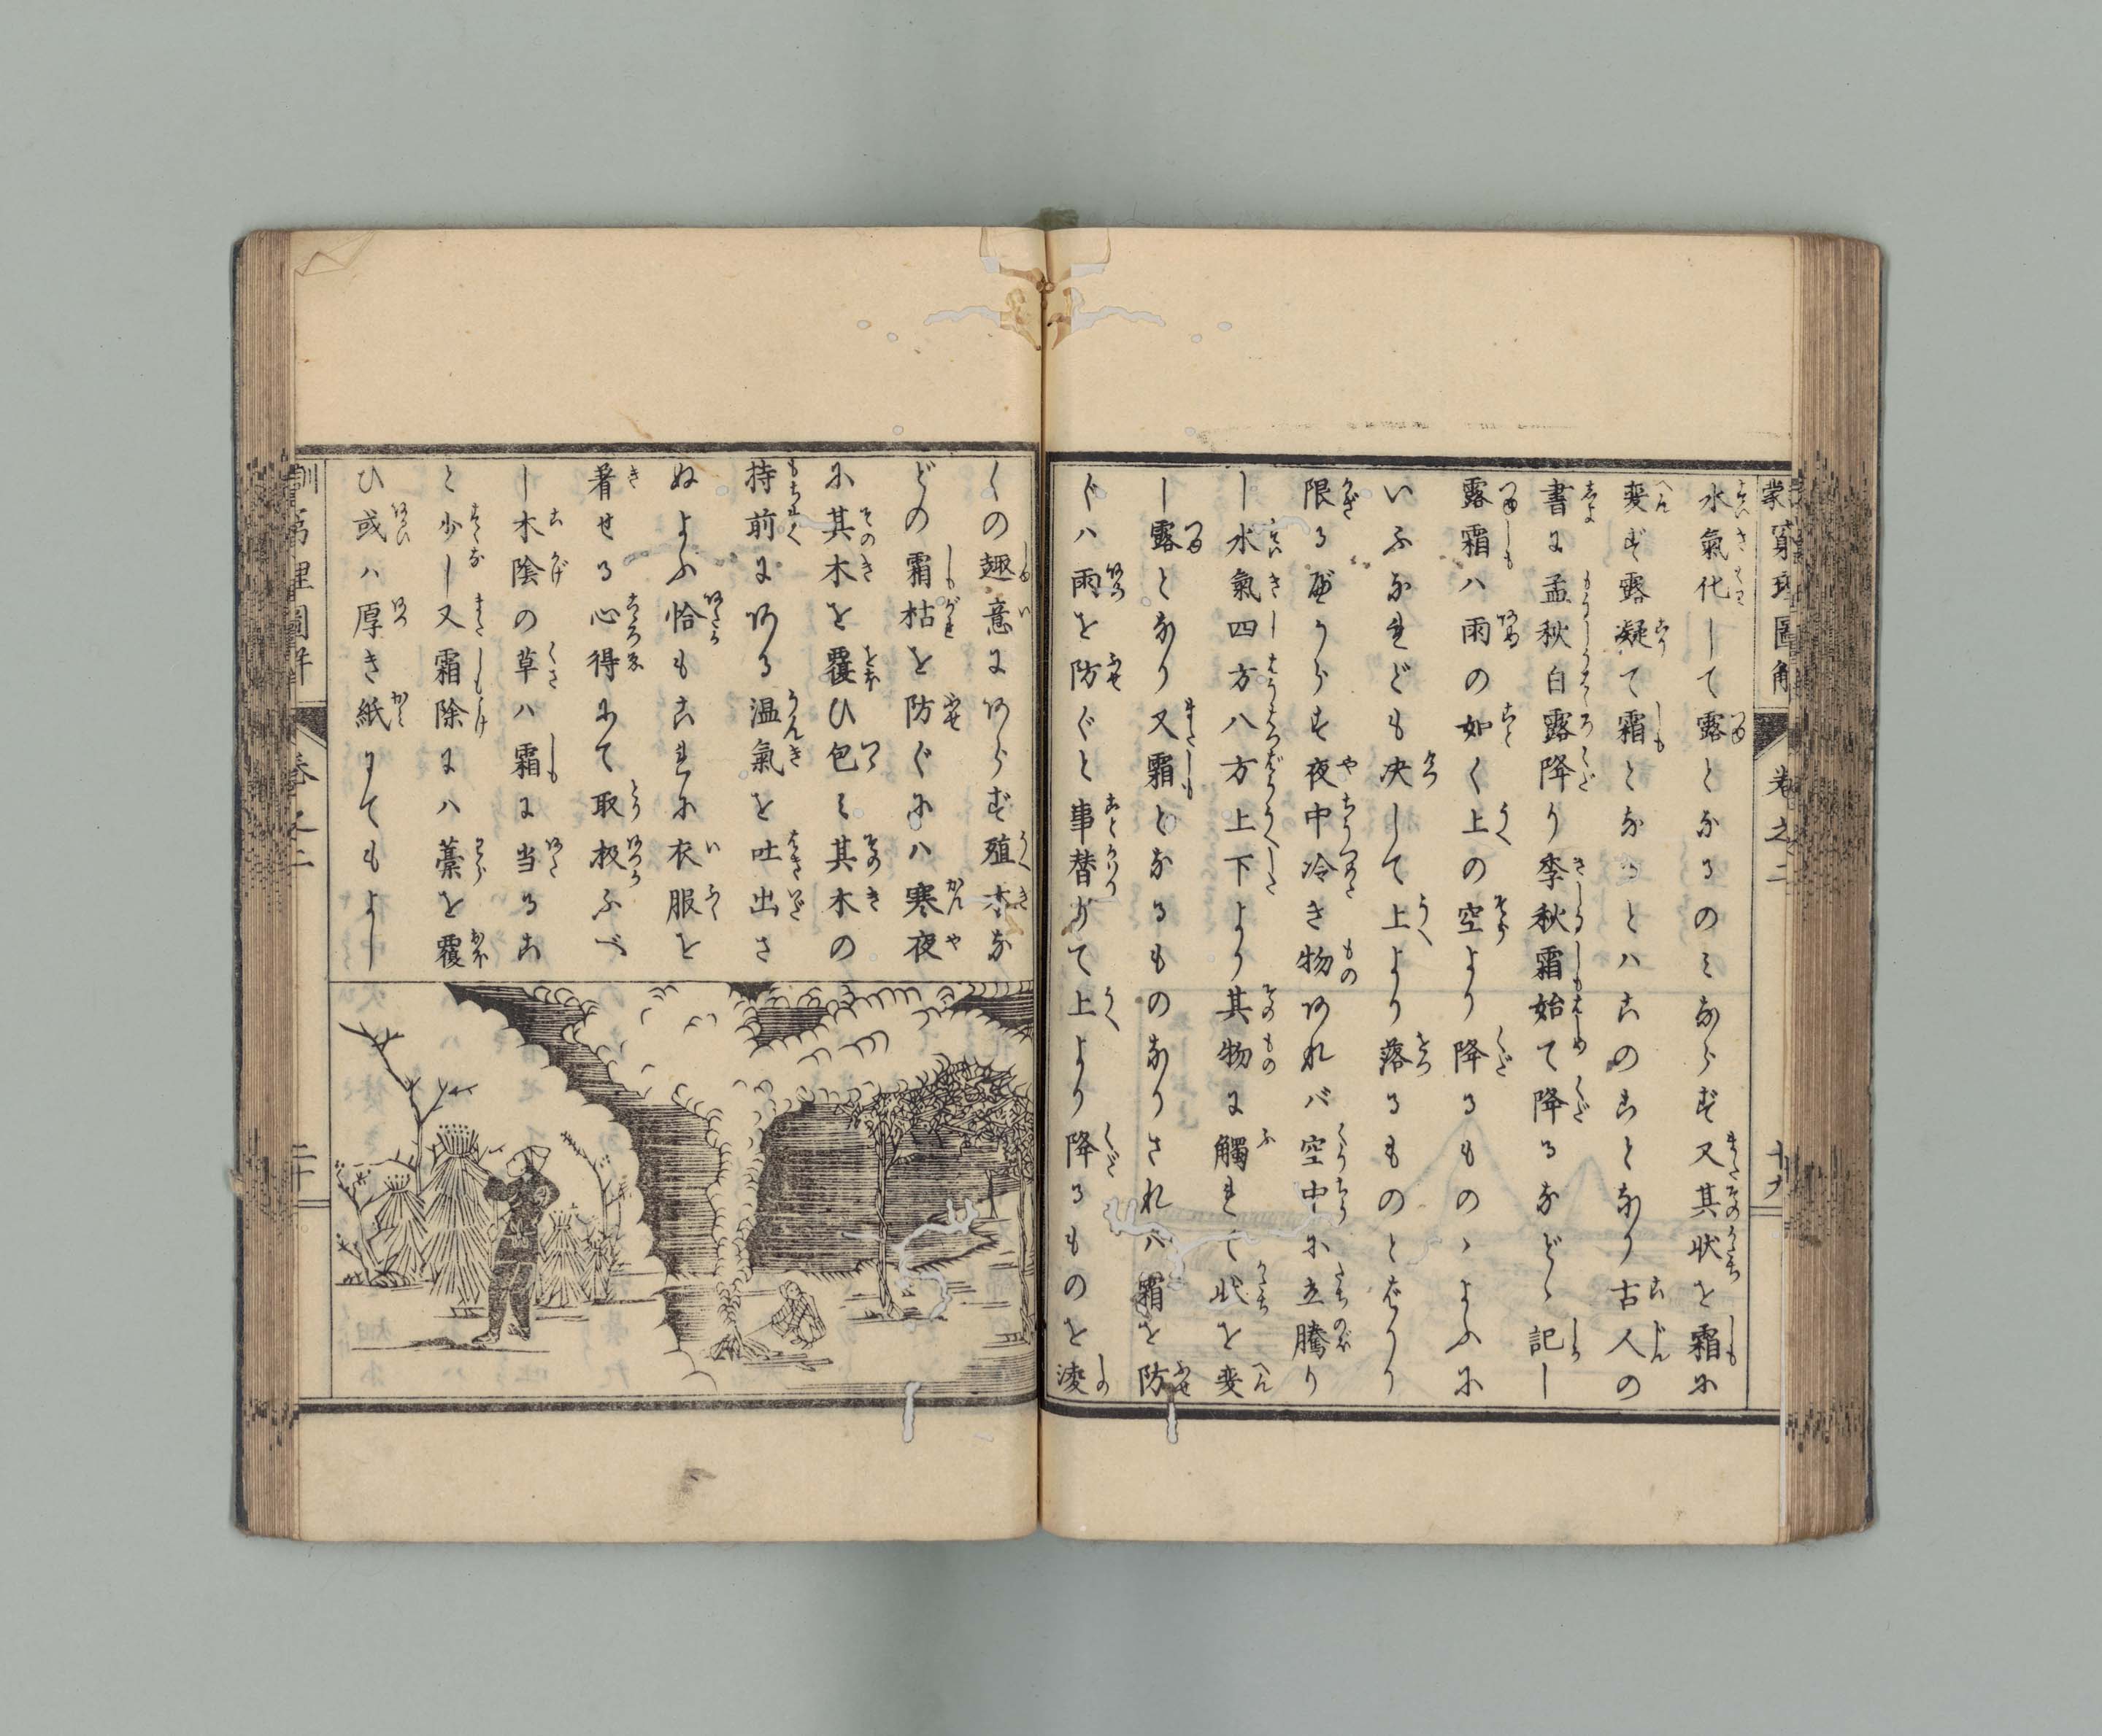 水氣化して露となるのミならず又其状を霜に
変ず露凝て霜となるとハこのことなり古人の
書に孟秋白露降り季秋霜始て降るなどゝ記し
露霜ハ雨の如く上の空より降るものゝよふに
いふなれども决して上より落るものとばかり
限るべからず夜中冷き物あれバ空中に立騰り
し水氣四方八方上下より其物に觸れて状を変
し露となり又霜となるものなりされバ霜を防
ぐハ雨を防ぐと事替りて上より降るものを凌
くの趣意にあらず殖木な
どの霜枯を防ぐにハ寒夜
に其木を覆ひ包ミ其木の
持前にある温氣を吐出さ
ぬよふ恰もこれに衣服を
着せる心得にて取扱ふべ
し木陰の草ハ霜に当るこ
と少し又霜除にハ藁を覆
ひ或ハ厚き紙にてもよし
卷之二
二十